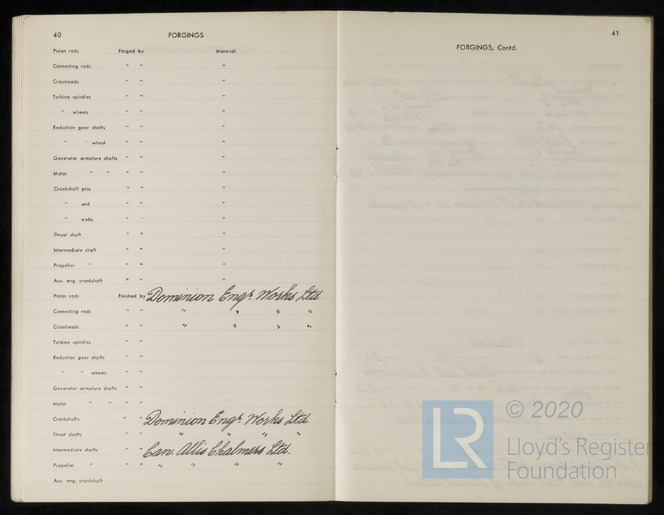 40 FORGINGS
Piston rods Forged by Material
Connecting rods " " "
Crossheads " " "
Turbine spindles " " "
" wheels " " "
Reduction gear shafts " " "
" " wheel " " "
Generator armature shafts " " "
Motor " " " " "
Crankshaft pins " " "
" and " " "
" webs " " "
Thrust shaft " " "
Intermediate shaft " " "
Propeller " " " "
Aux. eng. crankshaft " " "
Piston rods Finished by Dominion Engr. Works Ltd
Connecting rods " " " " " "
Crossheads " " " " " "
Turbine spindles " "
Reduction gear shafts " "
" " wheels " "
Generator armature shafts " "
Motor " " " "
Crankshafts " " Dominion Engr. Works Ltd.
Thrust shafts " " " " " "
Intermediate shafts " " Can. Allis Chalmers Ltd.
Propeller " " " " " " "
Aux. eng. crankshaft
41
FORGINGS, Contd.
LR © 2020
Lloyd's Register
Foundation